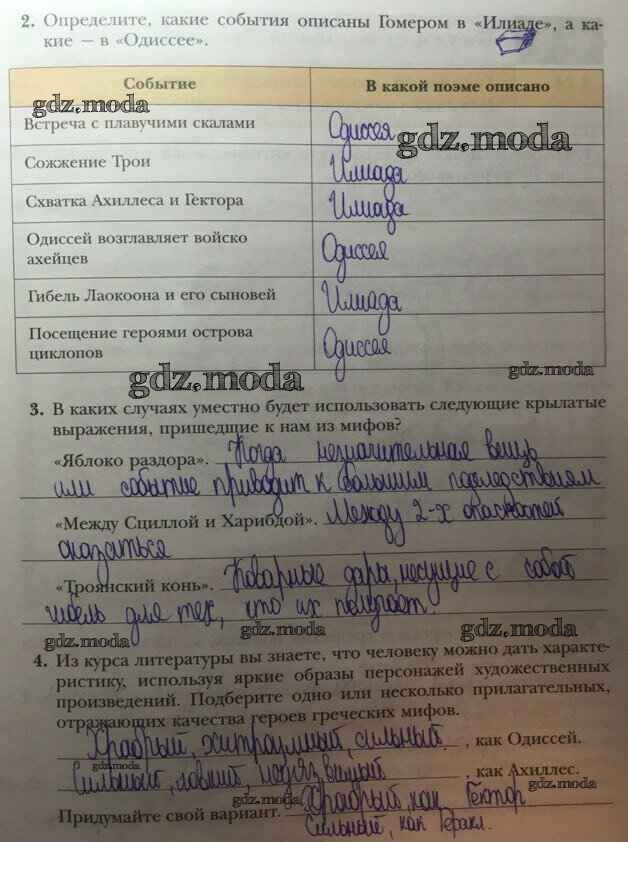 2. Определите, какие события описаны Гомером в «Илиаде», а ка-
кие — в «Одиссее».
Событие В какой поэме описано
gdz.moda
Встреча с плавучими скалами Одиссея
gdz.moda
Сожжение Трои Илиада
Схватка Ахиллеса и Гектора Илиада
Одиссей возглавляет войско
ахейцев Одиссея
Гибель Лаокоона и его сыновей Илиада
Посещение героями острова
циклопов Одиссея
gdz.moda
gdz.moda
3. В каких случаях уместно будет использовать следующие крылатые
выражения, пришедшие к нам из мифов?
«Яблоко раздора». Когда незначительная вещь
или событие приводит к большим последствиям
«Между Сциллой и Харибдой». Между 2-х опасностей
оказаться
«Троянский конь». Коварные дары, несущие с собой
гибель для тех, кто их получает.
gdz.moda
gdz.moda
gdz.moda
4. Из курса литературы вы знаете, что человеку можно дать характе-
ристику, используя яркие образы персонажей художественных
произведений. Подберите одно или несколько прилагательных,
отражающих качества героев греческих мифов.
Храбрый, хитроумный, сильный, как Одиссей.
gdz.moda
Сильный, ловкий, неуязвимый, как Ахиллес.
gdz.moda
Храбрый, как Гектор
Придумайте свой вариант. Сильный, как Геракл.
gdz.moda